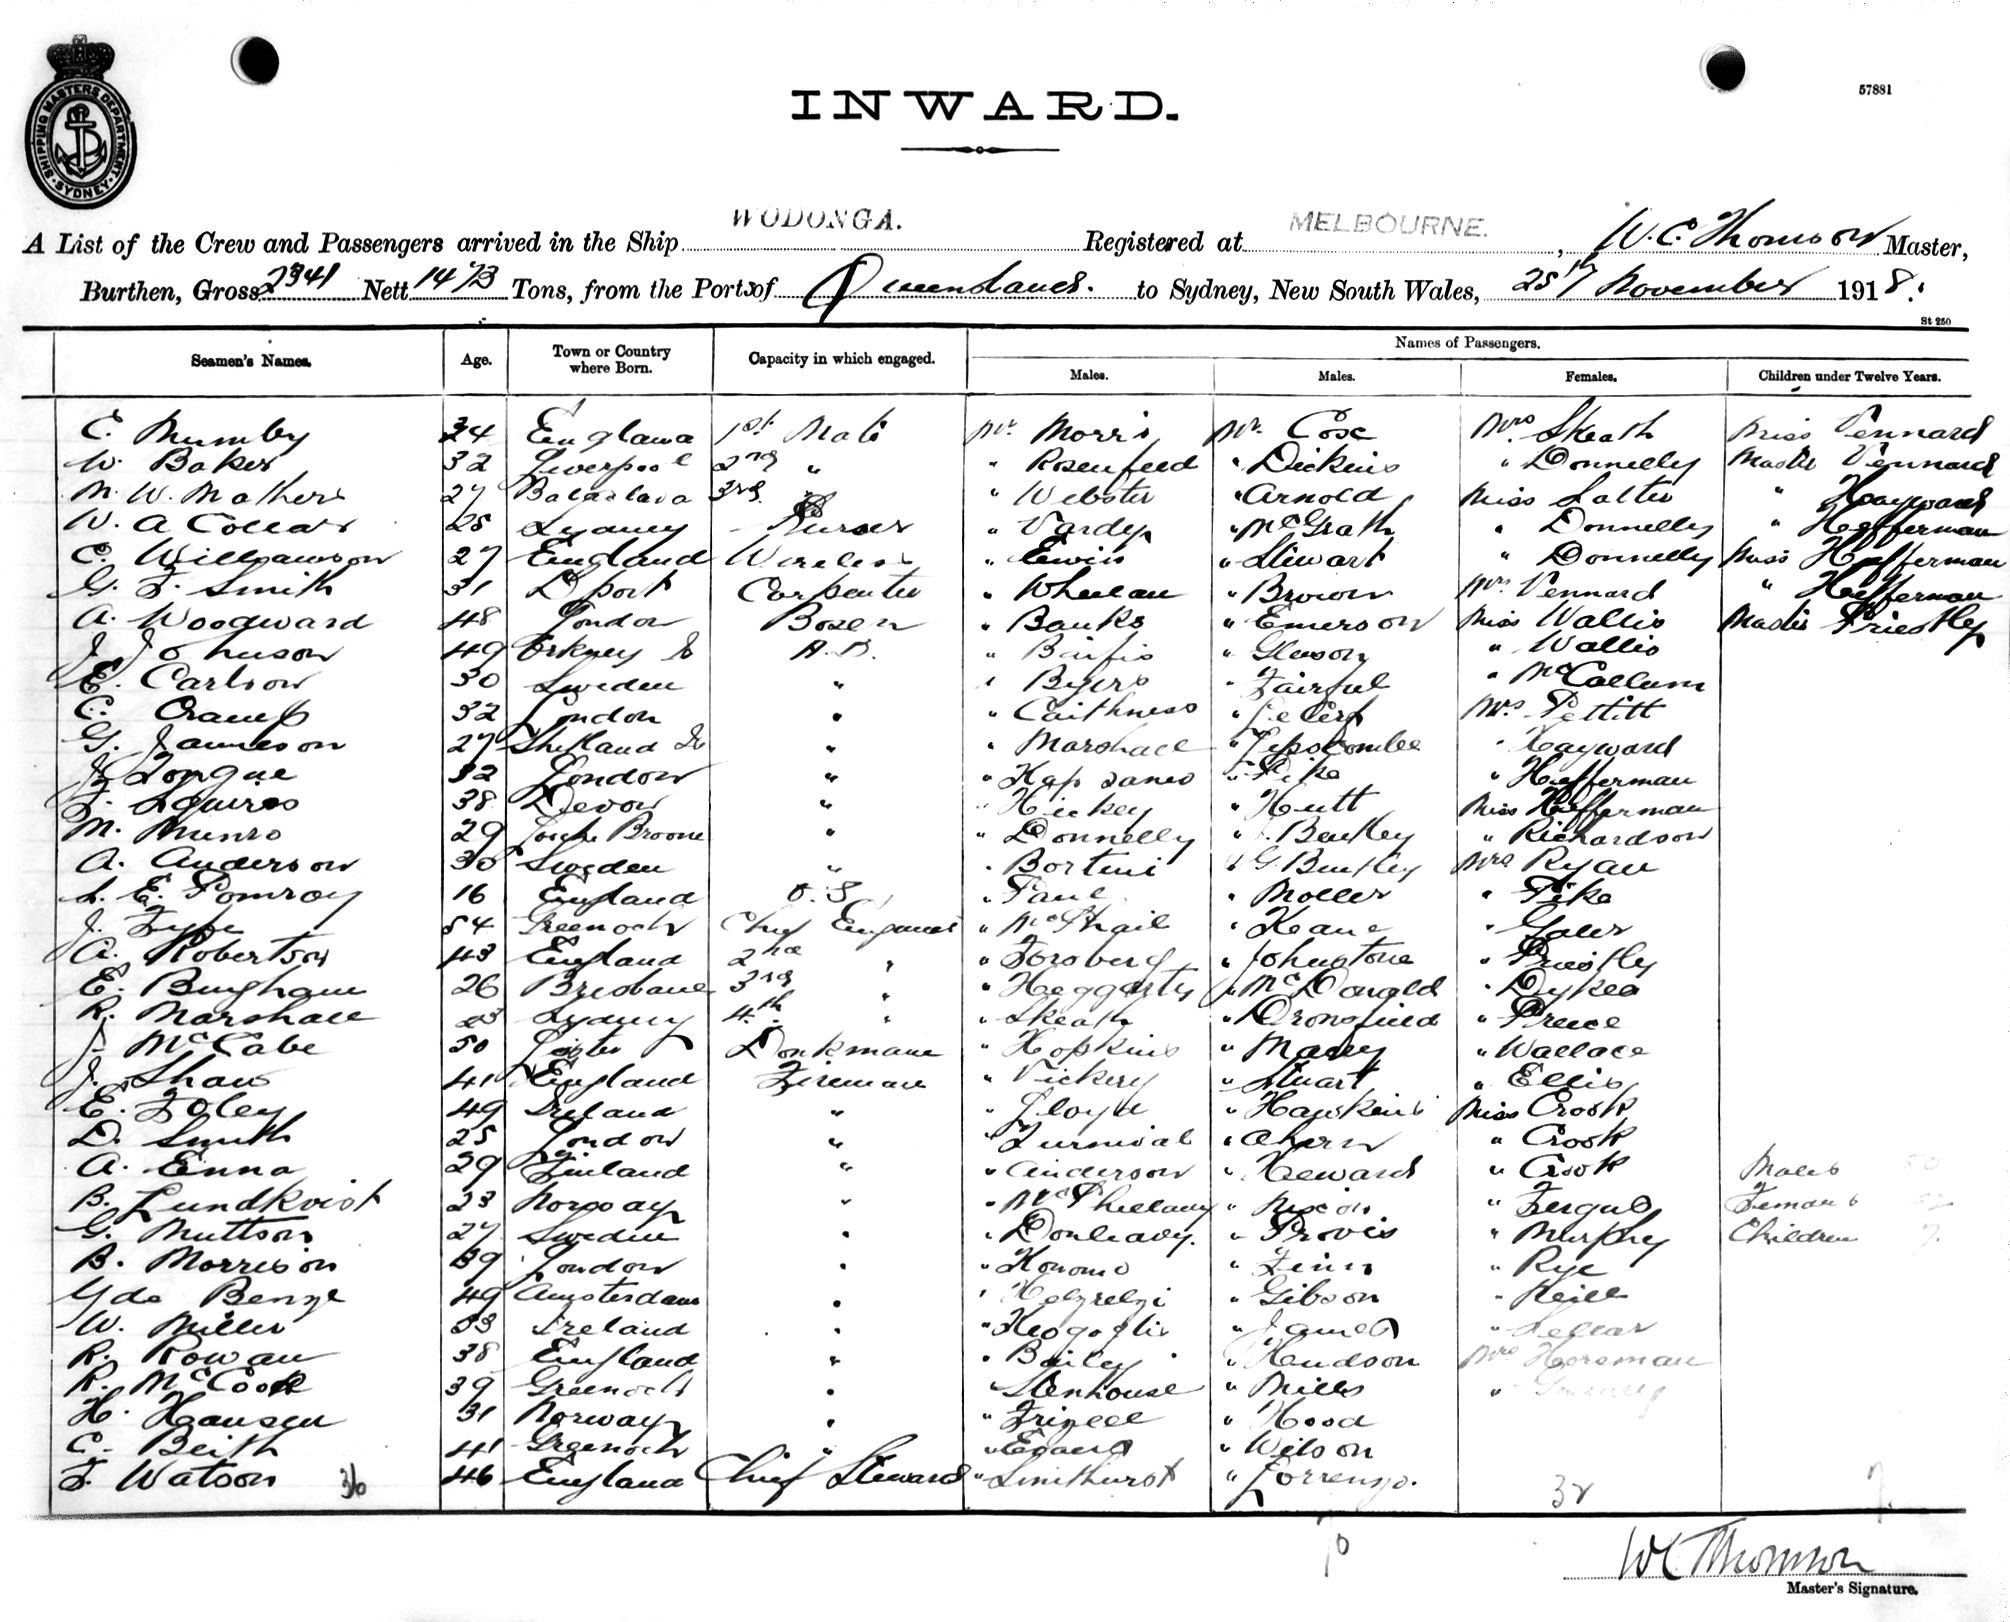 57881
SHIPPING MASTERS DEPARTMENT SYDNEY
INWARD.
A List of the Crew and Passengers arrived in the Ship WODONGA. Registered at MELBOURNE. , W. C. Thomson Master,
Burthen, Gross 2341 Nett 1473 Tons, from the Ports of Queensland. to Sydney, New South Wales, 25th November 1918.
St 250
Seamen's Names. Age. Town or Country where Born. Capacity in which engaged. Names of Passengers.
Males. Males. Females. Children under Twelve Years.
C. Mumby 34 England 1st Mate Mr. Morris Mr. Cox Mrs. Skeath Miss Vennard
W. Baker 32 Liverpool 2nd " " Rosenfeed " Dickins " Donnelly Master Vennard
M. W. Mathers 27 Balaclava 3rd " " Webster " Arnold Miss Salter " Hayward
W. A Collar 25 Sydney Purser " Vardy " McGrath " Donnelly " Hefferman
C. Williamson 27 England Wireless " Lewis " Stewart " Donnelly Miss Hefferman
G. F. Smith 31 D port Carpenter " Whelan " Brown Mrs. Vennard " Hefferman
A. Woodward 48 London Bosen " Banks " Emerson Miss Wallis Master Priestley
J. Johnson 49 Orkney Is A.B. " " Gleeson " Wallis
E. Carlson 30 Sweden " " Byers " Fairful " McCallum
C. Cramp 32 London " " Caithness " Mrs Pettitt
G. Jamieson 27 Shetland Is " " Marshall " Lipscombe " Hayward
J. Tongue 32 London " " " Pike " Hefferman
F. Squires 38 Devon " " Hickey " Hutt Miss Hefferman
M. Munro 29 Broome " " Donnelly " J. Bentley " Richardson
A. Anderson 30 Sweden " " Bortini " G. Bentley Mrs Ryan
L. E. Pomroy 16 England O.S. " Paul " Moller " Pike
J. Fyfe 54 Greenock Chief Engineer " McPhail " Keane "
A. Robertson 43 England 2nd " " Forsberg " Johnstone " Priestley
E. Bingham 26 Brisbane 3rd " " Heggarty " McDonald " Dykes
R. Marshall 23 Sydney 4th " " Skeath " Dronsfield " Preece
J. McCabe 50 Donkman " Hopkins " Macey " Wallace
J. Shaw 41 England Fireman " Vickery " Stuart " Ellis
E. Foley 49 Ireland " " Lloyd " Hawkins Miss Crook
D. Smith 25 London " " Furnival " Ahern " Crook
A. Enna 29 Finland " " Anderson " Heward " Crook Males 70
B. Lundkvist 23 Norway " " " Nixon " Fergus Females 32
G. Muttson 27 Sweden " " Donleavy. " Provis " Murphy Children 7.
B. Morrison 39 London " " Konomo " Finn " Rye
Yde Benze 49 Amsterdam " " " Gibson " Neill
W. Miller 53 Ireland " " " James " Sellar
R. Rowan 38 England " " Bailey " Hudson Mrs Horsman
R. McCook 39 Greenock " " Stenhouse " Mills "
H. Hansen 31 Norway " " Frizell " Hood
C. Beith 41 Greenock " " Evans " Wilson
F. Watson 36 46 England Chief Steward " Smithurst " Lorrenzo. 32 7.
70
WC Thomson
Master's Signature.